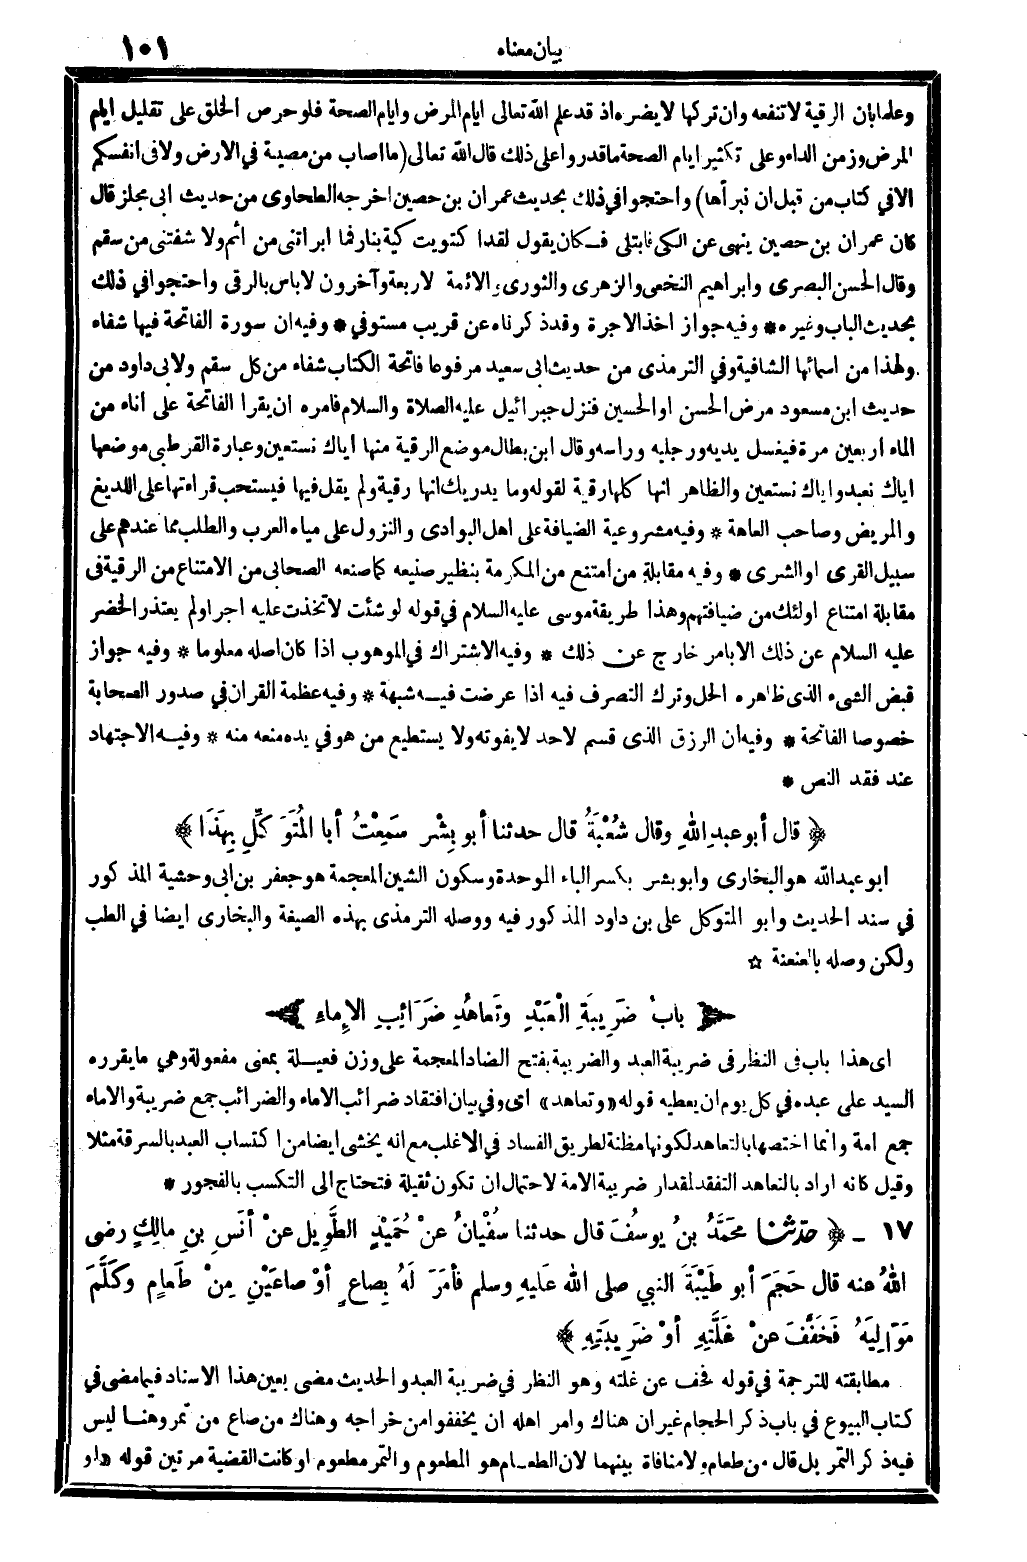 بيان معناه
١٠١
وعلما بان الرقية لا تنفعه وان تركها لا يضره اذ قد علم الله تعالى ايام المرض وايام الصحة فلو حرص الخلق على تقليل ايام
المرض وزمن الداء وعلى تكثير ايام الصحة ما قدروا على ذلك قال الله تعالى (ما اصاب من مصيبة في الارض ولا في انفسكم
الا في كتاب من قبل ان نبرأها) واحتجوا في ذلك بحديث عمران بن حصين اخرجه الطحاوى من حديث ابى مجلز قال
كان عمران بن حصين ينهى عن الكى فابتلى فكان يقول لقد اكتويت كية بنار فما ابراتنى من اثم ولا شفتنى من سقم
وقال الحسن البصرى وابراهيم النخعى والزهرى والثورى والائمة لاربعة وآخرون لا باس بالرقى واحتجوا في ذلك
بحديث الباب وغيره * وفيه جواز اخذ الاجرة وقد ذكرناه عن قريب مستوفي * وفيه ان سورة الفاتحة فيها شفاء
ولهذا من اسمائها الشافية وفي الترمذى من حديث ابى سعيد مرفوعا فاتحة الكتاب شفاء من كل سقم ولابى داود من
حديث ابن مسعود مرض الحسن او الحسين فنزل جبرائيل عليه الصلاة والسلام فامره ان يقرا الفاتحة على اناء من
الماء اربعين مرة فيغسل يديه ورجليه وراسه وقال ابن بطال موضع الرقية منها اياك نستعين وعبارة القرطبى موضعها
اياك نعبد واياك نستعين والظاهر انها كلها رقية لقوله وما يدريك انها رقية ولم يقل فيها فيستحب قراءتها على اللديغ
والمريض وصاحب العاهة * وفيه مشروعية الضيافة على اهل البوادى والنزول على مياه العرب والطلب مما عندهم على
سبيل القرى او الشرى * وفيه مقابلة من امتنع من المكرمة بنظير صنيعه كما صنعه الصحابى من الامتناع من الرقية فى
مقابلة امتناع اولئك من ضيافتهم وهذا طريقة موسى عليه السلام في قوله لو شئت لاتخذت عليه اجرا ولم يعتذر الخضر
عليه السلام عن ذلك الا بامر خارج عن ذلك * وفيه الاشتراك في الموهوب اذا كان اصله معلوما * وفيه جواز
قبض الشىء الذى ظاهره الحل وترك التصرف فيه اذا عرضت فيه شبهة * وفيه عظمة القران في صدور الصحابة
خصوصا الفاتحة * وفيه ان الرزق الذى قسم لاحد لا يفوته ولا يستطيع من هو في يده منعه منه * وفيه الاجتهاد
عند فقد النص *
﴿ قال أبو عبد اللهِ وقال شُعْبَةُ قال حدثنا أبو بِشْر سَمِعْتُ أبا المُتَوَكِّلِ بِهَذَا ﴾
ابو عبدالله هو البخارى وابو بشر بكسر الباء الموحدة وسكون الشين المعجمة هو جعفر بن ابى وحشية المذكور
في سند الحديث وابو المتوكل على بن داود المذكور فيه ووصله الترمذى بهذه الصيغة والبخارى ايضا في الطب
ولكن وصله بالعنعنة ☆
باب ضَرِيبَةِ الْعَبْدِ وتَعاهُدِ ضَرَائِبِ الإِماءِ
اى هذا باب فى النظر فى ضريبة العبد والضريبة بفتح الضاد المعجمة على وزن فعيلة بمعنى مفعولة وهي ما يقرره
السيد على عبده في كل يوم ان يعطيه قوله «وتعاهد» اى وفي بيان افتقاد ضرائب الاماء والضرائب جمع ضريبة والاماء
جمع امة وانما اختصها بالتعاهد لكونها مظنة لطريق الفساد في الاغلب مع انه يخشى ايضا من اكتساب العبد بالسرقة مثلا
وقيل كانه اراد بالتعاهد التفقد لمقدار ضريبة الامة لاحتمال ان تكون ثقيلة فتحتاج الى التكسب بالفجور *
١٧ ـ ﴿ حدثنا محَمَّدُ بنُ يوسُفَ قال حدثنا سفْيانُ عنْ حُمَيْدٍ الطَّوِيلِ عنْ أنَسِ بنِ مالِكٍ رضى
اللهُ عنه قال حَجَمَ أبو طَيْبَةَ النبي صلى الله عَليهِ وسلم فأمَرَ لَهُ بِصاعٍ أوْ صاعَيْنِ مِنْ طَعامٍ وكَلَّمَ
مَوَالِيَهُ فَخَفَّفَ عنْ غَلَّتِهِ أوْ ضَرِيبَتِهِ ﴾
مطابقته للترجمة في قوله فخفف عن غلته وهو النظر في ضريبة العبد والحديث مضى بعين هذا الاسناد فيما مضى في
كتاب البيوع في باب ذكر الحجام غير ان هناك وامر اهله ان يخففوا من خراجه وهناك من صاع من تمر وهنا ليس
فيه ذكر التمر بل قال من طعام ولا منافاة بينهما لان الطعام هو المطعوم والتمر مطعوم او كانت القضية مرتين قوله «او